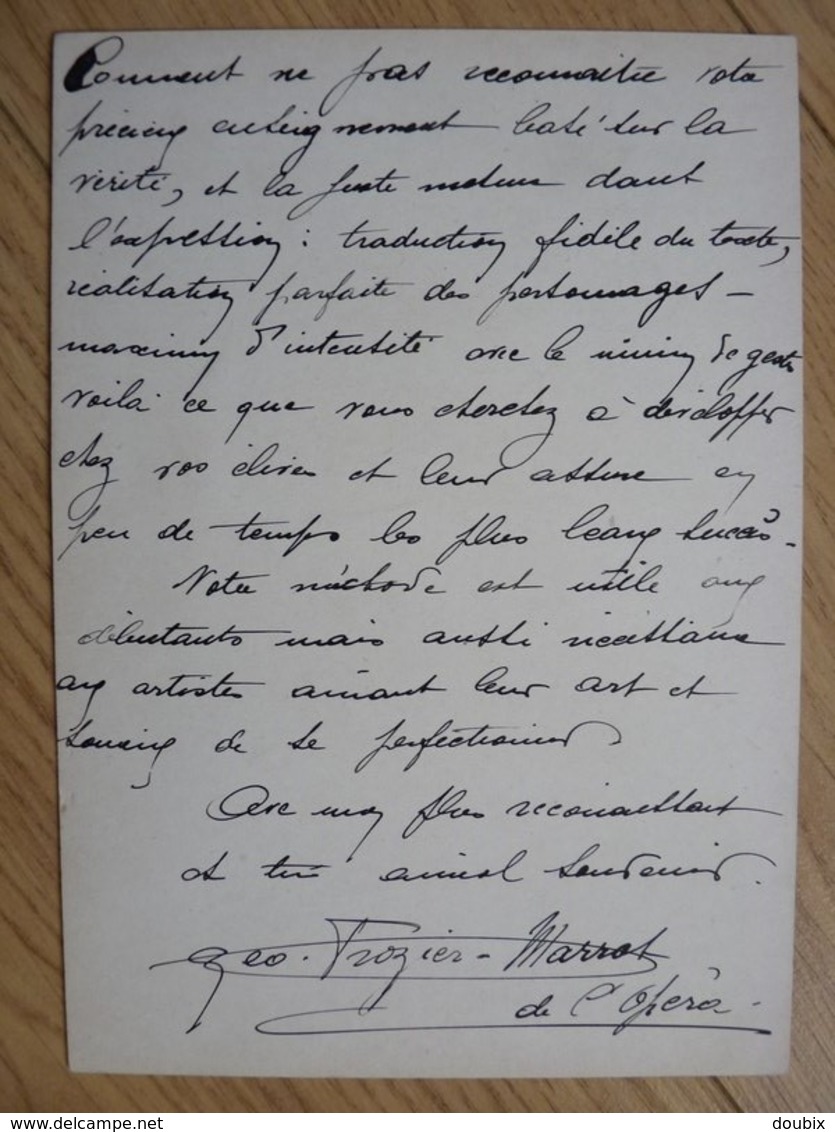 Comment ne pas reconnaitre votre
précieux enseignement basé sur la
vérité, et la juste mesure dans
l'expression : traduction fidèle du texte,
réalisation parfaite des personnages -
maximum d'intensité avec le minimum de gestes
voilà ce que vous cherchez à développer
chez vos élèves et leur assure en
peu de temps les plus beaux succès -
Votre méthode est utile aux
débutants mais aussi nécessaire
aux artistes aimant leur art et
soucieux de se perfectionner
Avec mon plus reconnaissant
et très amical souvenir.
Geo. Frozier-Marrot
de l'Opéra -
doubix